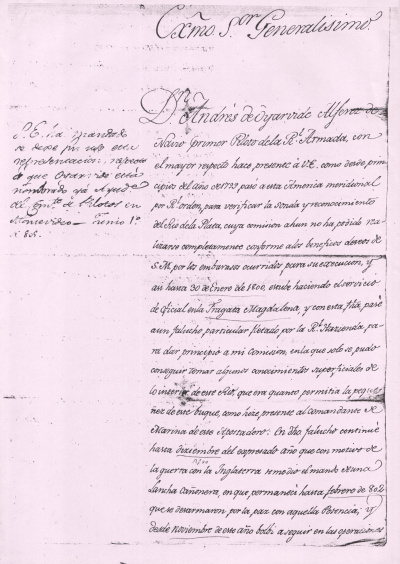 Exmo. S.or Generalisimo.
Dn. Andrés de Oyarvide Alferez de
Navio y primer Piloto de la Rl. Armada, con
el mayor respeto hace presente à V.E. como desde prin-
cipios del año de 789 pasó a esta America meridional
por Rl. orden, para verificar la sonda y reconocimiento
del Rio de la Plata, cuya comision ahun no ha podido rea-
lizarse completamente conforme a los beneficos deseos de
S.M. por los embarasos ocurridos para su execucion, y
asi hasta 30 de Enero de 1800, estube haciendo el servicio
de Oficial en la Fragata Magdalena, y con esta fha. pasé
a un falucho particular fletado por la Rl. Hazienda, pa-
ra dar principio a mi Comision, en la que solo se pudo
conseguir tomar algunos conocimientos superficiales de
lo interior de este Rio, que era quanto permitia la peque-
ñez de este buque, como hize presente al Comandante de
Marina de este Apostadero: En dho falucho continué
hasta diziembre del expresado año que con motivo de
la guerra con la Inglaterra se me dio el mando de una
Lancha Cañonera, en que permanecí hasta febrero de 802
que se desarmaron por la paz con aquella Potencia; y
desde noviembre de este año bolbi a seguir en las operaciones
S.E. há mandado
se dexe sin uso esta
representacion, respecto
a que Oyarvide está
nombrado ya Ayudte.
de Pilotos en
Montevideo. Junio 1º